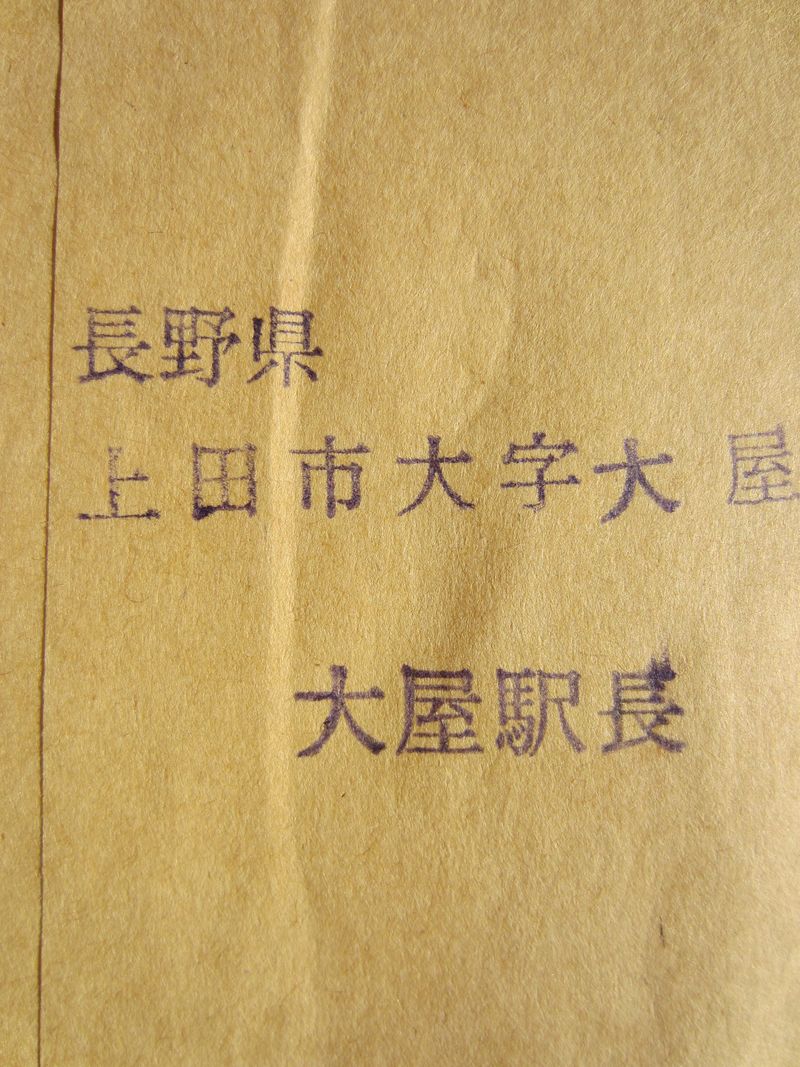 長野県
上田市大字大屋
大屋駅長